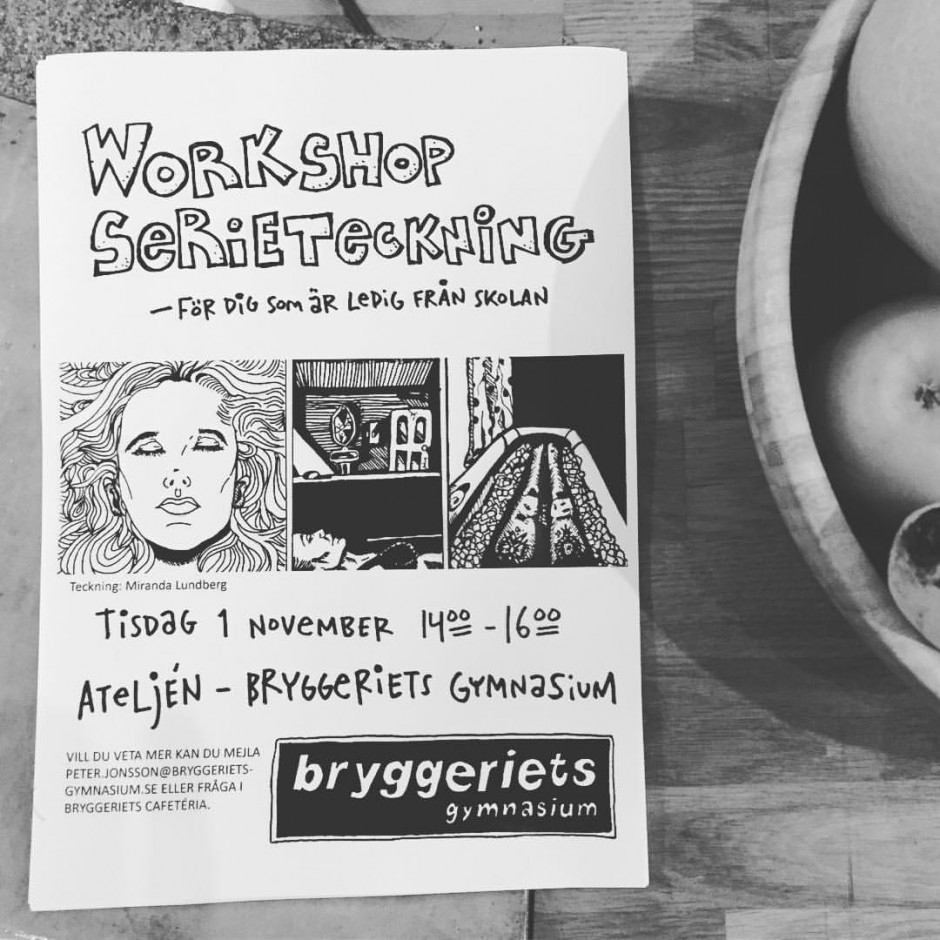 WORKSHOP
SERIETECKNING
— FÖR DIG SOM ÄR LEDIG FRÅN SKOLAN
Teckning: Miranda Lundberg
TISDAG 1 NOVEMBER 1400 - 1600
ATELJÉN - BRYGGERIETS GYMNASIUM
VILL DU VETA MER KAN DU MEJLA
PETER.JONSSON@BRYGGERIETS-
GYMNASIUM.SE ELLER FRÅGA I
BRYGGERIETS CAFETÉRIA.
bryggeriets
gymnasium